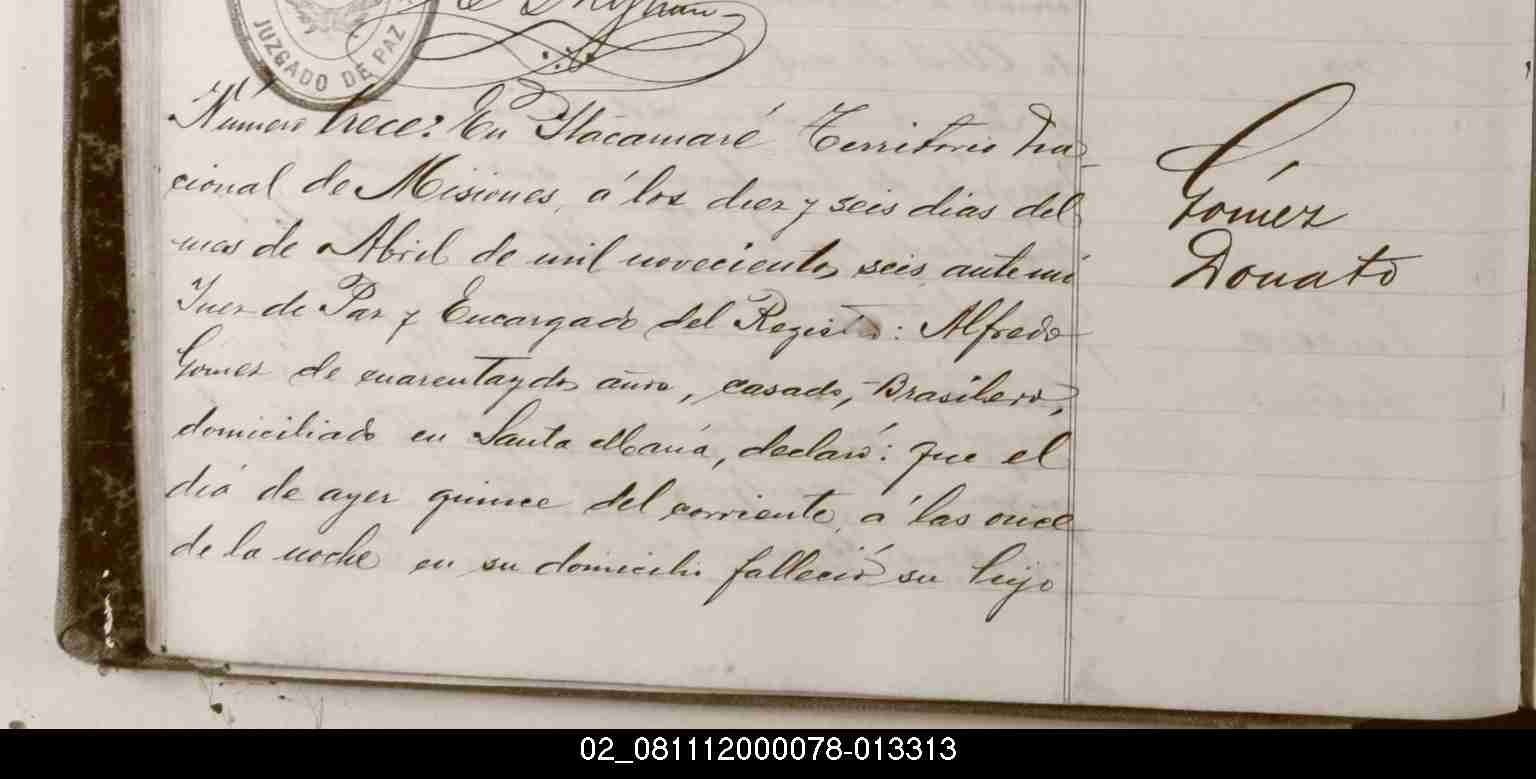 JUZGADO DE PAZ
Número trece: En Itacamaré Territorio Na-
cional de Misiones, á los diez y seis dias del
mes de Abril de mil novecientos seis, ante mi
Juez de Paz y Encargado del Registro: Alfredo
Gomez de cuarentaydos años, casado, Brasilero,
domiciliado en Santa María, declaró: que el
diá de ayer quince del corriente, á las once
de la noche en su domicilio falleció su hijo
Gómez
Donato
02_081112000078-013313